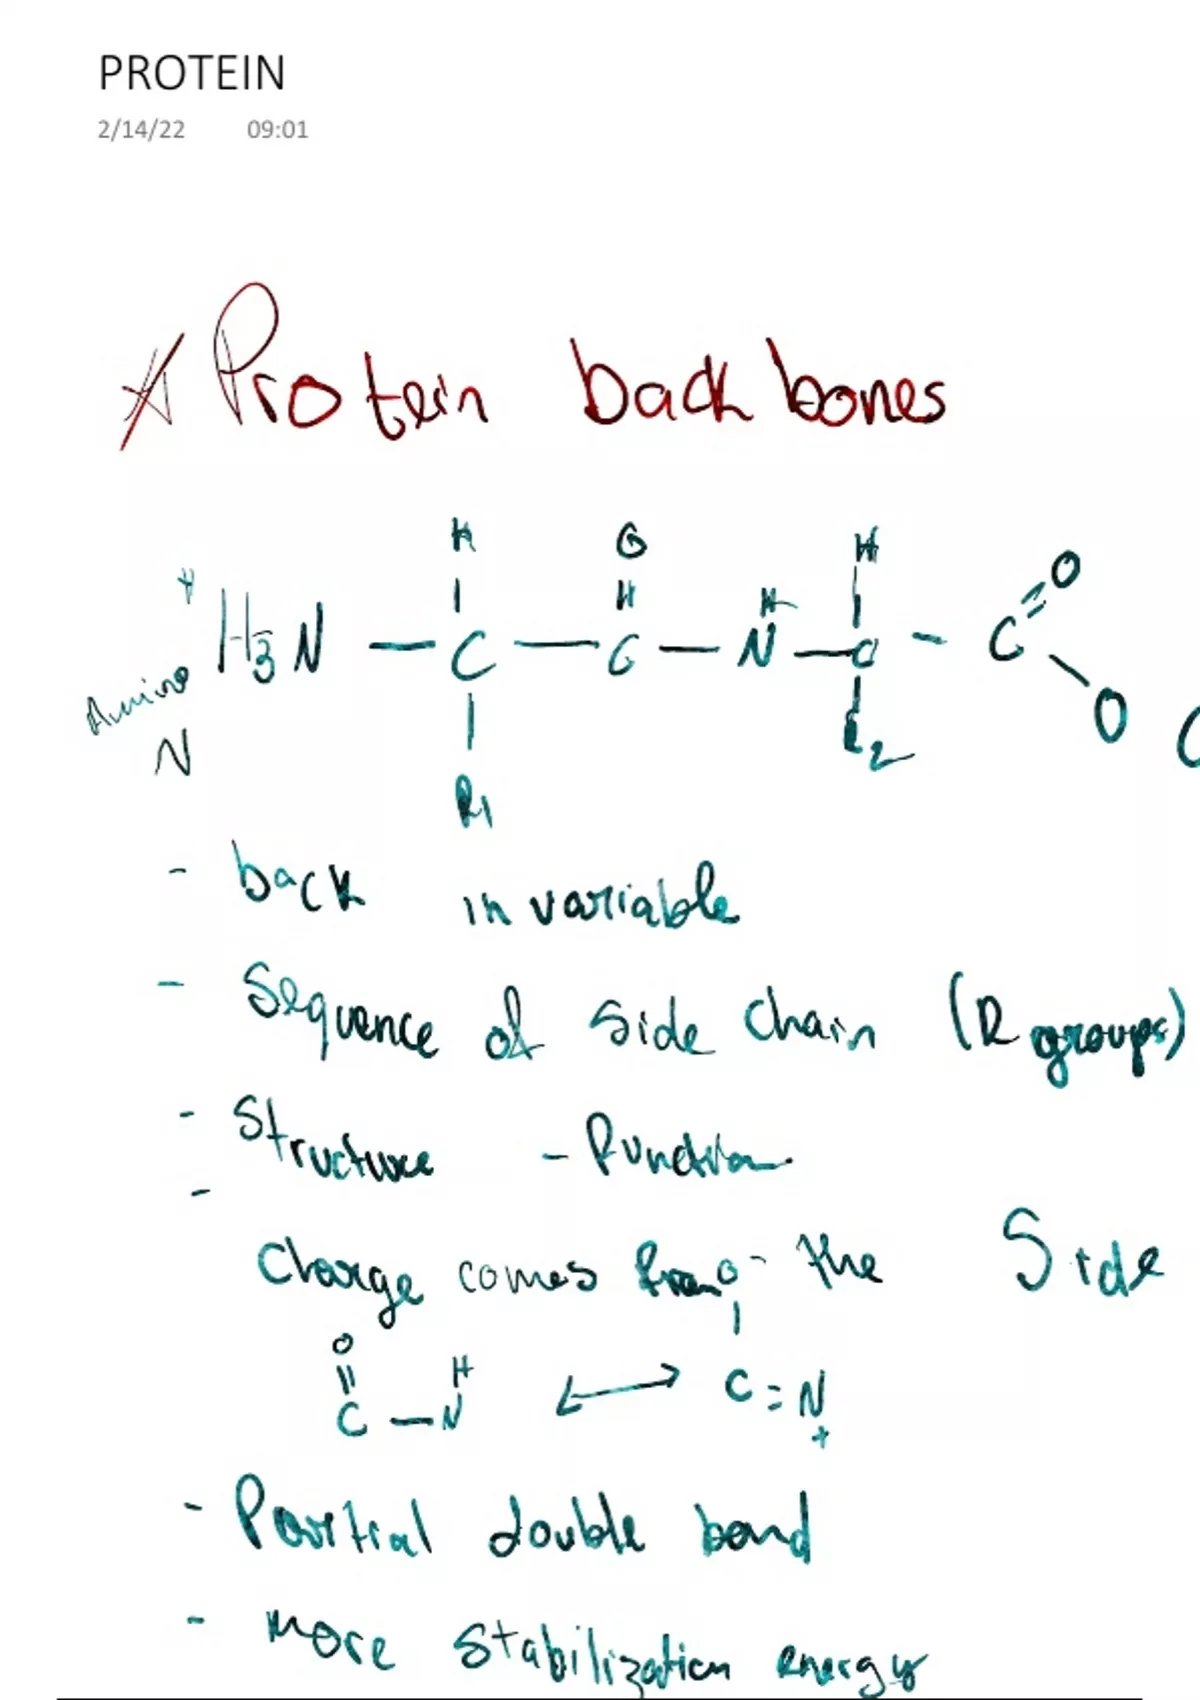 PROTEIN
2/14/22 09:01
* Protein backbones
H O H
+ H3N — C — C — N — C — C O
H
Amino R1 R2 O
N
- back invariable
- Sequence of side chain (R groups)
- Structure - function
-
Charge comes from the Side
O H O-
C — N ↔ C = N
+
- Partial double bond
- more stabilization energy